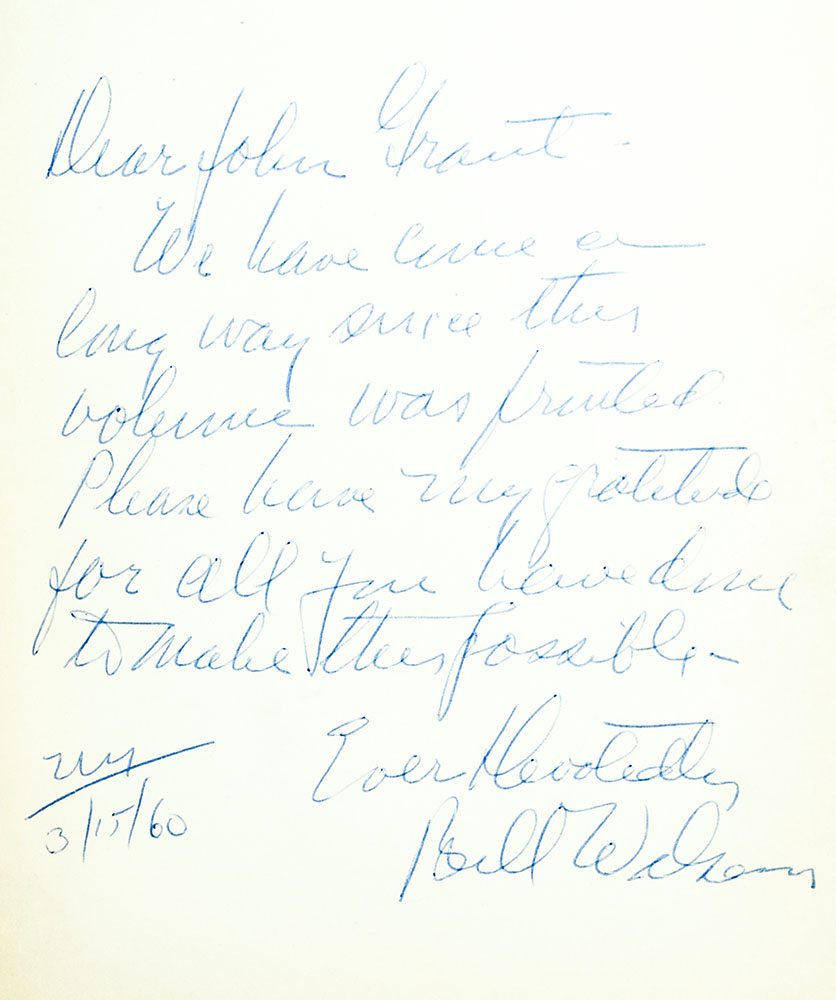 Dear John Grant -
We have come a
long way since this
volume was printed.
Please have my gratitude
for all you have done
to make this possible -
Ever Devotedly
NY
3/15/60
Bill Wilson